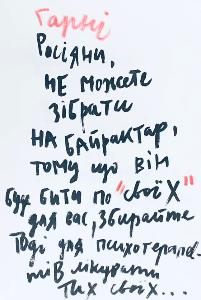 Гарні
Росіяни,
не можете
зібрати
на Байрактар,
тому що він
буде бити по "своїх"
для вас, збирайте
тоді для психотерапев-
тів лікувати
тих своїх...